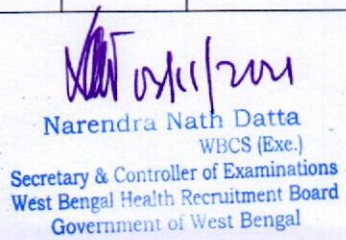 03/11/2021
Narendra Nath Datta
WBCS (Exe.)
Secretary & Controller of Examinations
West Bengal Health Recruitment Board
Government of West Bengal